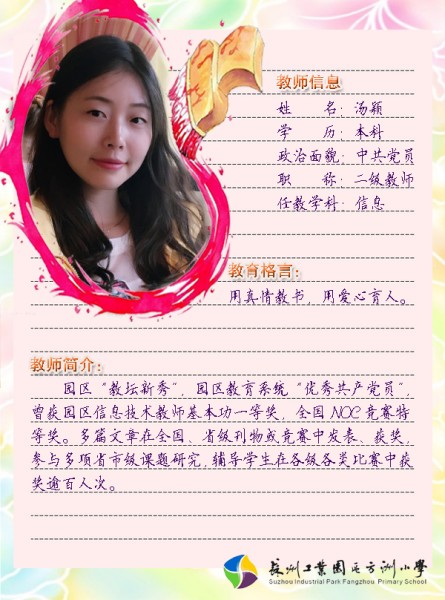 教师信息
姓 名：汤颖
学 历：本科
政治面貌：中共党员
职 称：二级教师
任教学科：信息
教育格言：
用真情教书，用爱心育人。
教师简介：
园区“教坛新秀”，园区教育系统“优秀共产党员”，
曾获园区信息技术教师基本功一等奖，全国 NOC 竞赛特
等奖。多篇文章在全国、省级刊物或竞赛中发表、获奖，
参与多项省市级课题研究，辅导学生在各级各类比赛中获
奖逾百人次。
苏州工业园区方洲小学
Suzhou Industrial Park Fangzhou Primary School